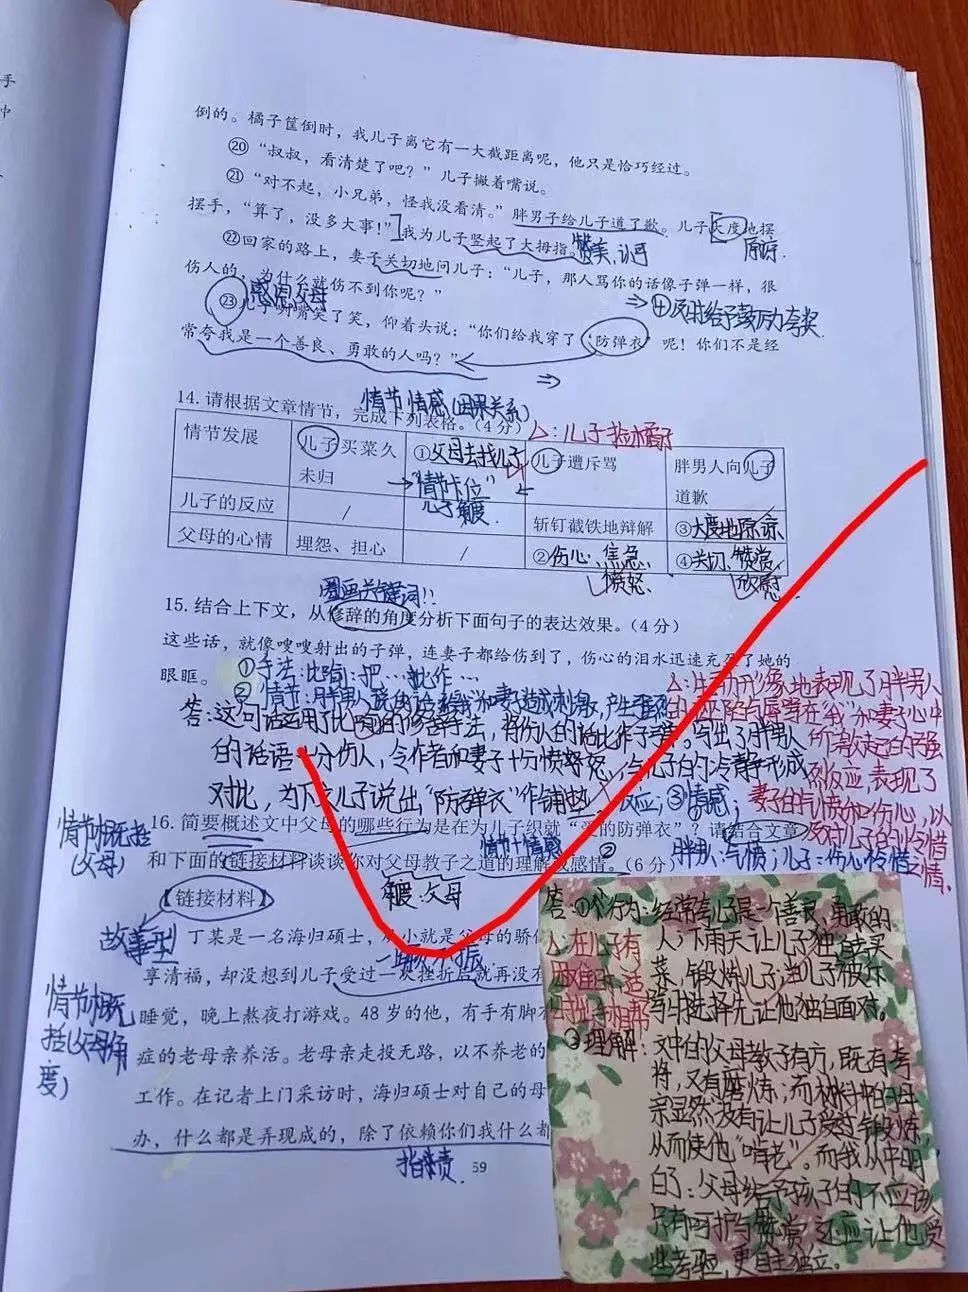 手
中
倒的。橘子筐倒时，我儿子离它有一大截距离呢，他只是恰巧经过。
⑳“叔叔，看清楚了吧？”儿子撇着嘴说。
㉑“对不起，小兄弟，怪我没看清。”胖男子给儿子道了歉。儿子大度地摆
摆手，“算了，没多大事！”我为儿子竖起了大拇指。
赞美、认可
原谅
㉒回家的路上，妻子关切地问儿子：“儿子，那人骂你的话像子弹一样，很
伤人的，为什么就伤不到你呢？”
感恩父母
④及时给予鼓励夸奖
㉓儿子咧嘴笑了笑，仰着头说：“你们给我穿了‘防弹衣’呢！你们不是经
常夸我是一个善良、勇敢的人吗？”
情节 情感(因果关系)
14. 请根据文章情节，完成下列表格。（4分）
△：儿子捡橘子
情节发展 儿子买菜久未归 ①父母去找儿子 儿子遭斥骂 胖男人向儿子道歉
“情节卡位”
儿子的反应 / 斩钉截铁地辩解 ③大度地原谅
父母的心情 埋怨、担心 / ②伤心、焦急、 ④关切、赞赏、
愤怒 欣慰
圈画关键词!!
15. 结合上下文，从修辞的角度分析下面句子的表达效果。（4分）
这些话，就像嗖嗖射出的子弹，连妻子都给伤到了，伤心的泪水迅速充盈了她的
眼眶。
①手法：比喻：把…比作…
答：这句话运用了比喻的修辞手法，将伤人的话比作子弹，写出了胖男人
的话语十分伤人，令作者和妻子十分愤怒，与儿子的冷静形成
对比，为下文儿子说出“防弹衣”作铺垫
反应；③情感；
△：生动形象地表现了胖男人
妻子的气愤和伤心，以
情节概括
(父母)
16. 简要概述文中父母的哪些行为是在为儿子织就“爱的防弹衣”？请结合文章
情节+情感
和下面的链接材料谈谈你对父母教子之道的理解或感情。（6分）
胖男人：气愤；儿子：伤心
角度：父母
【链接材料】
故事型
丁某是一名海归硕士，从小就是父母的骄
一蹶不振
享清福，却没想到儿子受过一次挫折后就再没有
睡觉，晚上熬夜打游戏。48岁的他，有手有脚
症的老母亲养活。老母亲走投无路，以不养老的
工作。在记者上门采访时，海归硕士对自己的母
办，什么都是弄现成的，除了依赖你们我什么都
情节概
括(父母角
度)
指责
59
答：①个行为：经常夸儿子是一个善良、勇敢的
人；下雨天让儿子独自去买
菜，锻炼儿子；当儿子被斥
骂时选择先让他独自面对。
△在儿子有
困难时适
时出手相帮
②理解：文中的父母教子有方，既有夸
将，又有磨炼；而材料中的母
亲显然没有让儿子受过锻炼，
从而使他“啃老”。而我从中明
白了：父母给予孩子的不应该
只有呵护与赞赏，还应让他受
些考验，更自主独立。